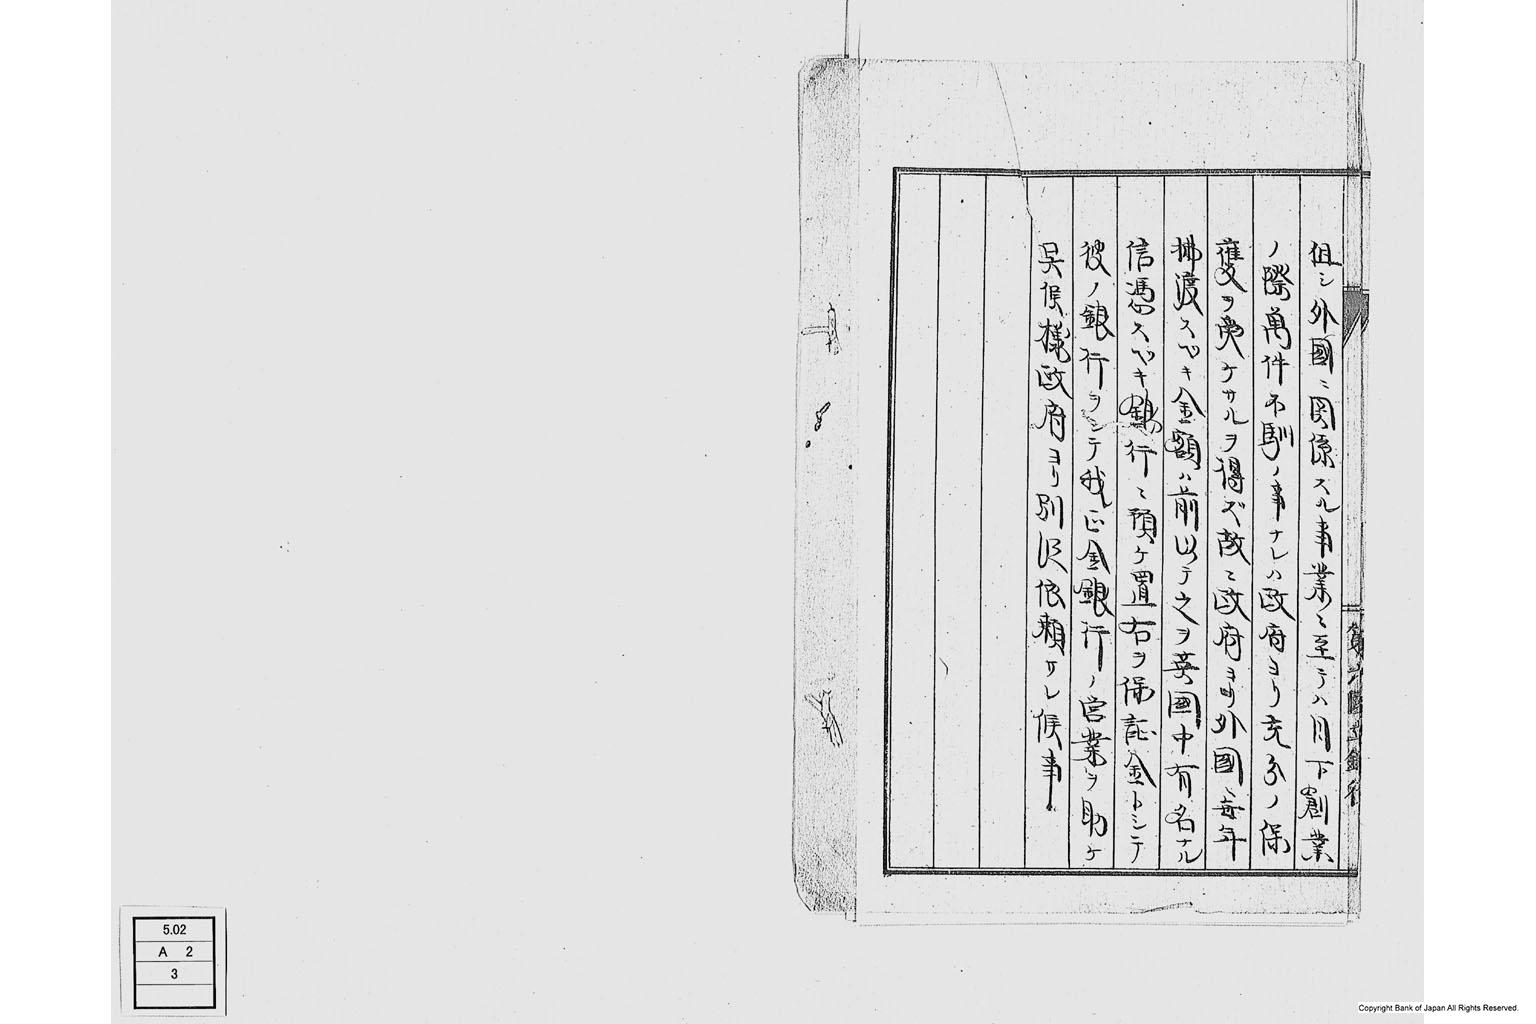 但シ外國ニ関係スル事業ニ至テハ目下創業
ノ際萬件不馴ノ事ナレハ政府ヨリ充分ノ保
護ヲ受ケサルヲ得ズ故ニ政府ヨリ外國ニ毎年
拂渡スベキ金額ハ前以テ之ヲ英國中有名ナル
信憑スベキ銀行ニ預ケ置右ヲ保証金トシテ
彼ノ銀行ヲシテ我正金銀行ノ営業ヲ助ケ
呉候様政府ヨリ別段依頼サレ候事
國立銀行
5.02
A 2
3
Copyright Bank of Japan All Rights Reserved.